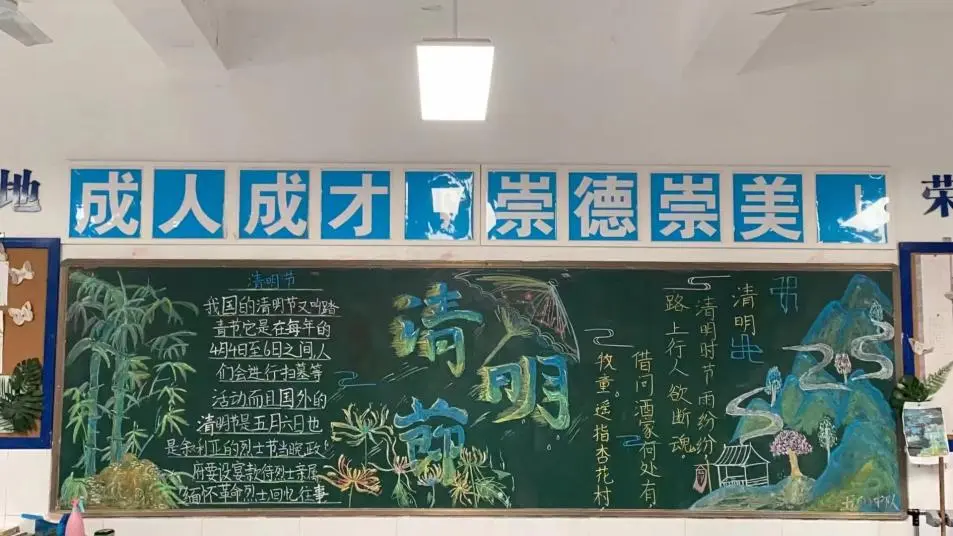 地
成人成才 崇德崇美
荣
清明节
我国的清明节又叫踏
青节它是在每年的
4月4日至6日之间,人
们会进行扫墓等
活动而且国外的
清明节是五月六日也
是叙利亚的烈士节当晚政
府要设宴款待烈士亲属
缅怀革命烈士回忆往事
清明節
清明
清明时节雨纷纷,
路上行人欲断魂。
借问酒家何处有,
牧童遥指杏花村。